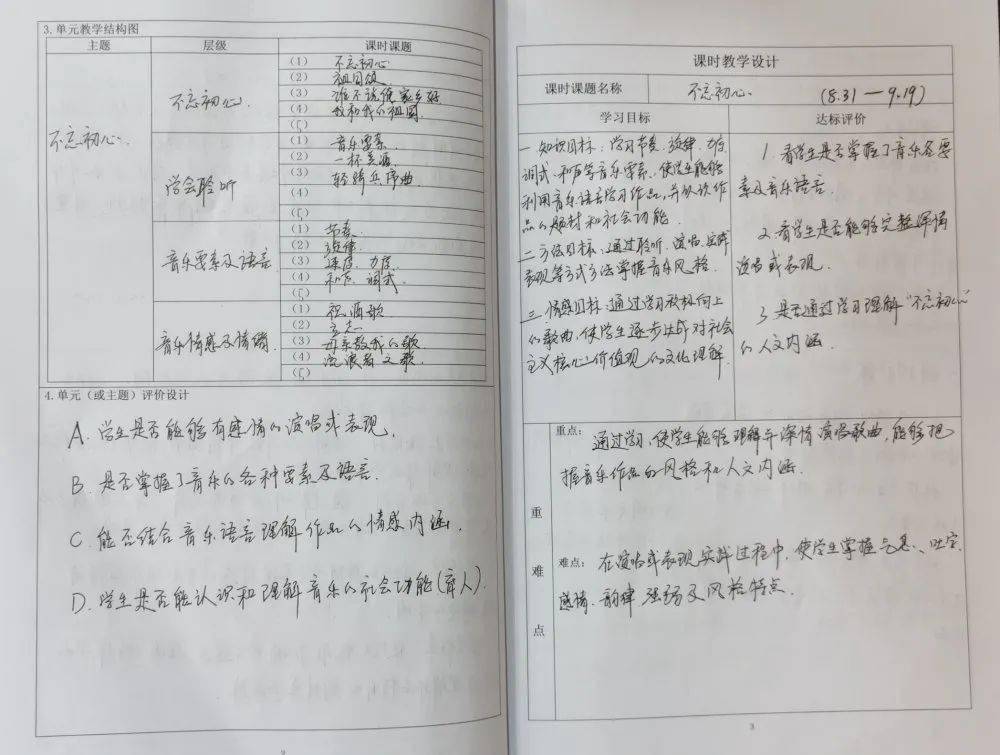 3.单元教学结构图
主题 层级 课时课题
不忘初心 不忘初心
(1) 不忘初心
(2) 祖国颂
(3) 谁不说俺家乡好
(4) 我和我的祖国
(5)
学会聆听
(1) 音乐要素
(2) 一杯美酒
(3) 轻骑兵序曲
(4)
(5)
音乐要素及语言
(1) 节奏
(2) 旋律
(3) 速度、力度
(4) 和声、调式
(5)
音乐情感及情绪
(1) 祝酒歌
(2)
(3) 母亲教我的歌
(4) 流浪者之歌
(5)
4.单元（或主题）评价设计
A. 学生是否能够有感情的演唱或表现.
B. 是否掌握了音乐的各种要素及语言.
C. 能否结合音乐语言理解作品的情感内涵.
D. 学生是否能认识和理解音乐的社会功能(育人).
2
课时教学设计
课时课题名称 不忘初心. (8.31—9.19)
学习目标 达标评价
一.知识目标：学习节奏、旋律、力度
调式、和声等音乐要素、使学生能够
利用音乐语言学习作品,并认识作
品的题材和社会功能.
二.方法目标：通过聆听、演唱、实践
表现等方式方法掌握音乐风格.
三.情感目标：通过学习积极向上
的歌曲,使学生逐步达成对社会
主义核心价值观的文化理解.
1. 看学生是否掌握了音乐各要
素及音乐语言.
2. 看学生是否能够完整深情
演唱或表现.
3. 是否通过学习理解“不忘初心”
的人文内涵.
重难点
重点： 通过学习,使学生能够理解并深情演唱歌曲,能够把
握音乐作品的风格和人文内涵.
难点： 在演唱或表现实践过程中,使学生掌握气息、吐字、
感情、韵律、强弱及风格特点.
3